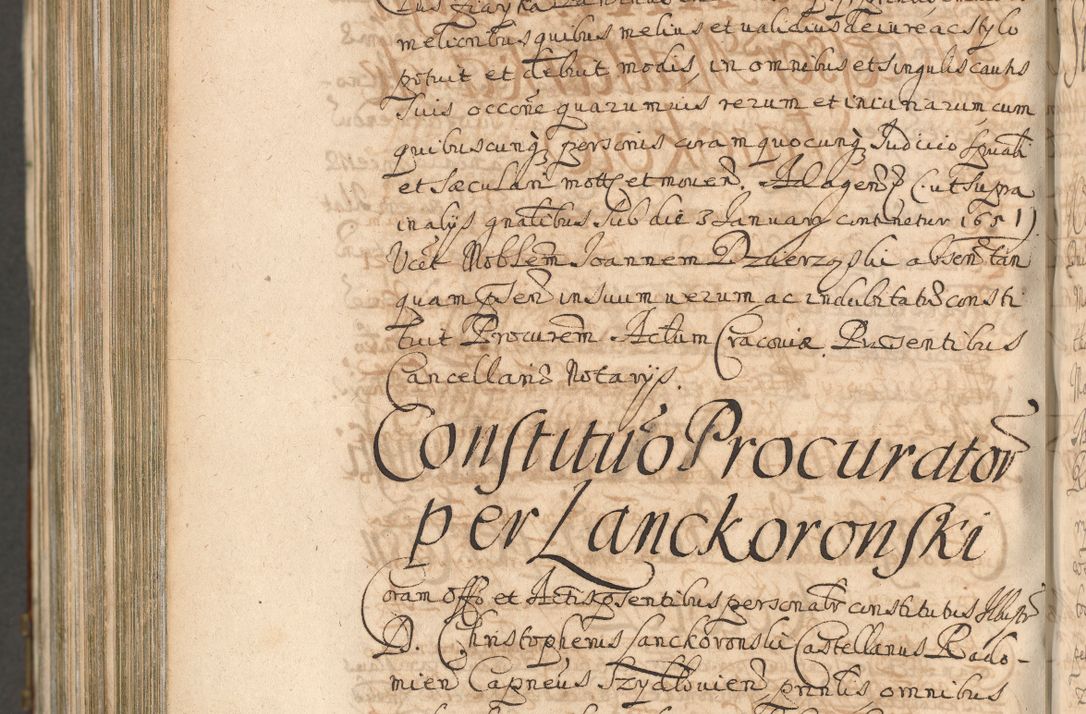 melioribus quibus melius et validius de iure ac stylo
potuit et debuit modis, in omnibus et singulis causis
suis occone quarumuis rerum et iniuriarum cum
quibuscunq personis coram quocunq Iudicio spuali
et sæculari mott et mouen. Ad agen (: ut supra
in alys gnalibus sub die 3 January continetur 1651 :)
Ucet Noblem Ioannem Dzierzyski absen tan
quam psen in suum uerum ac indubitat consti
tuit Procurem Actum Cracoviæ. Præsentibus
Cancellariæ Notarys.
Constitutio Procurator
per Lanckoronski
Coram offo et Actis psentibus personalr constitutus Illustr
D. Christopherus Lanckoronski Castellanus Rado-
mien Capneus Szydlouien prntis omnibus